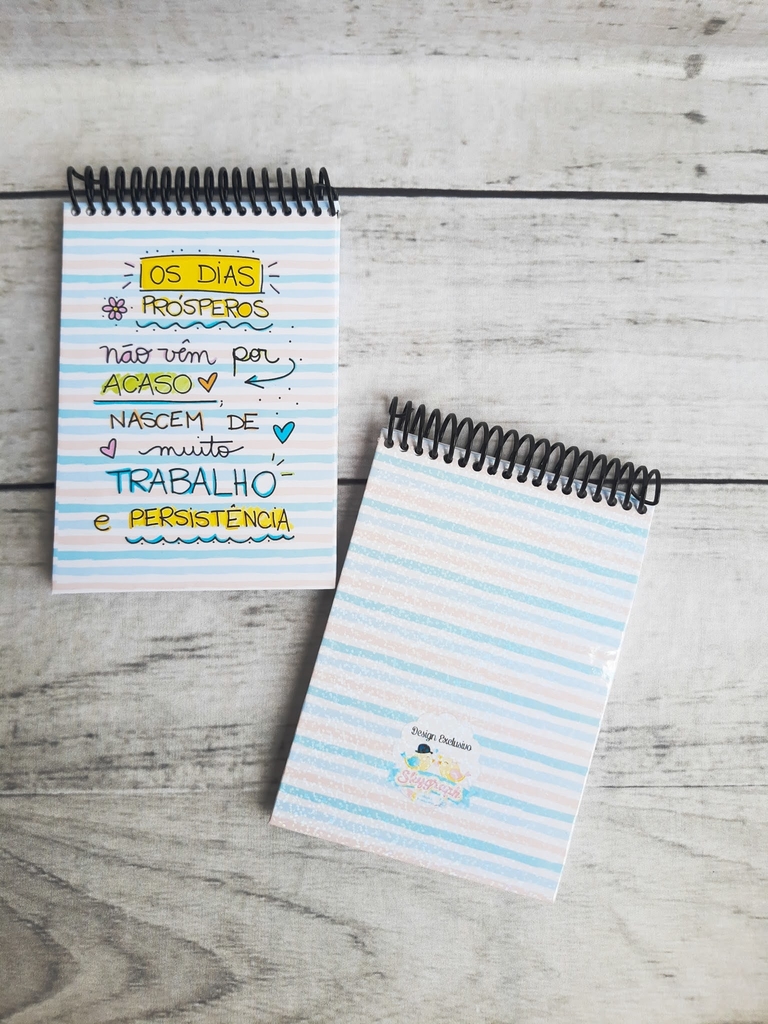 OS DIAS
PRÓSPEROS
não vêm por
ACASO
NASCEM DE
muito
TRABALHO
e PERSISTÊNCIA
Design Exclusivo